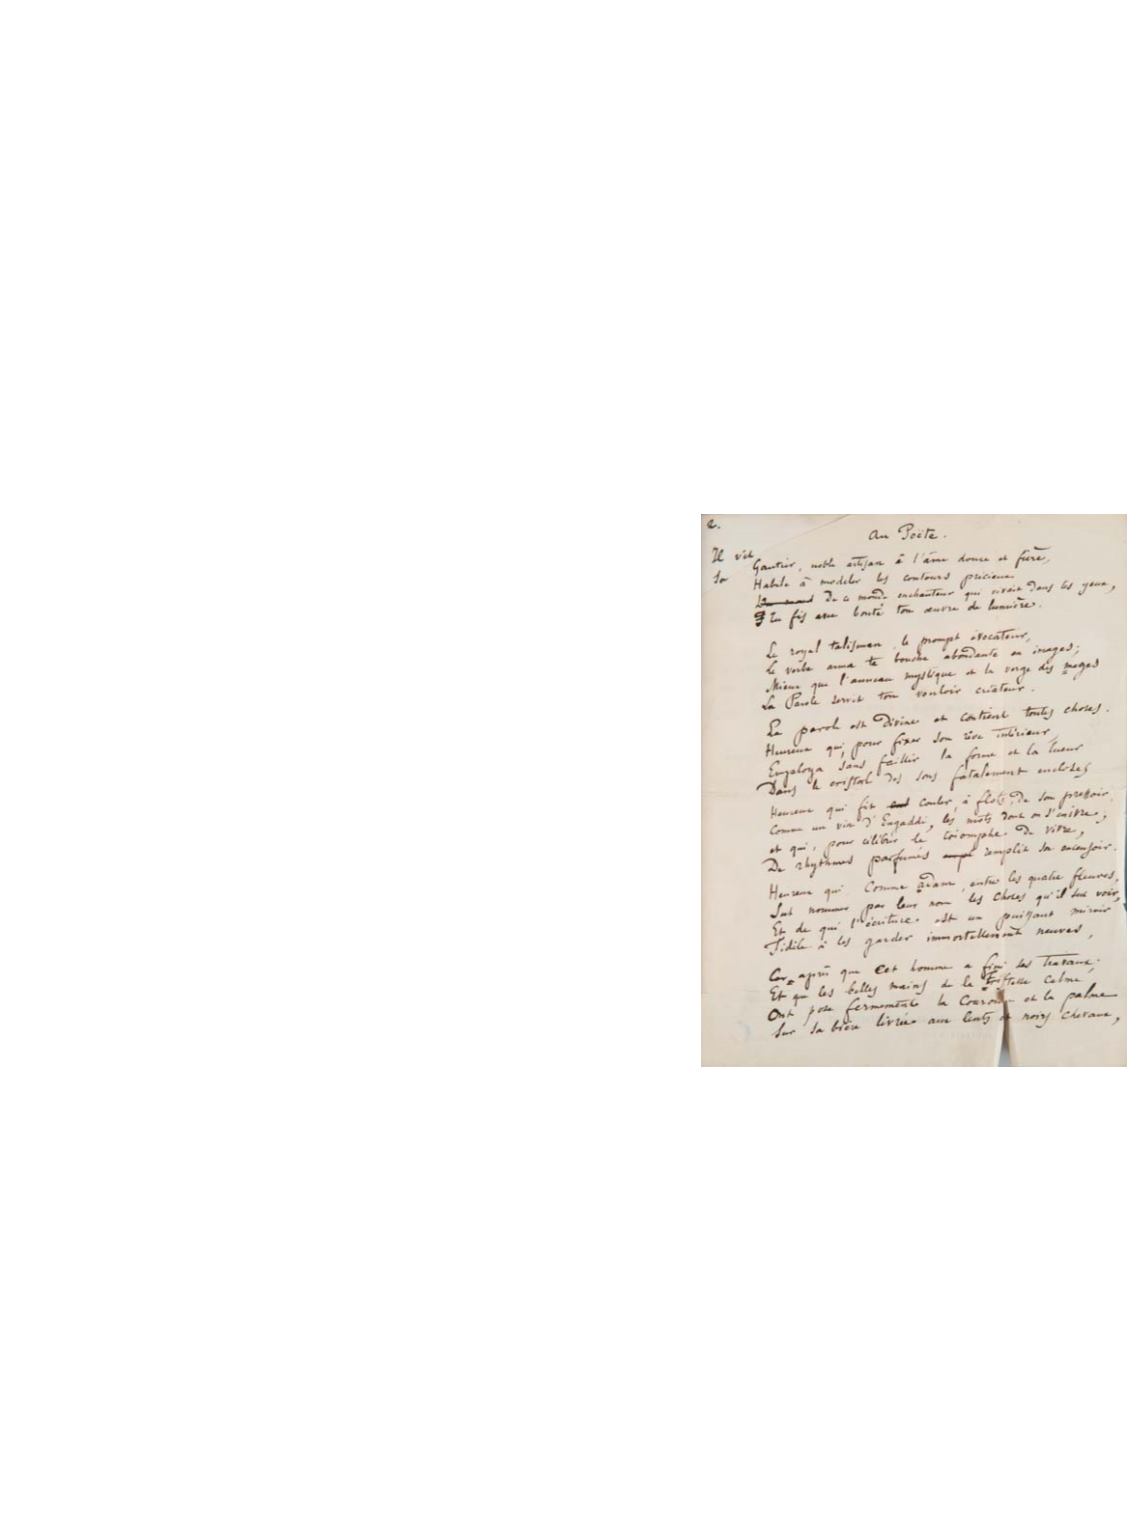 2.
Au Poëte.
Il v'el
Sa
Gautier, noble artisan à l'âme douce et fière,
Habile à modeler les contours précieux
De ce monde enchanteur qui vivait dans tes yeux,
Tu fis avec bonté ton œuvre de lumière.
Le royal talisman, le prompt évocateur,
Le verbe arma ta bouche abondante en images;
Mieux que l'anneau mystique et la verge des mages
La Parole servit ton vouloir créateur.
La parole est divine et contient toutes choses.
Heureux qui, pour fixer son rêve intérieur,
Employa sans faillir la forme et la lueur
Dans le cristal des sons fatalement encloses
Heureux qui fit couler, à flots, de son pressoir,
Comme un vin d'Engaddi, les mots dont on s'enivre;
et qui, pour célébrer le triomphe de vivre,
De rhythmes parfumés remplit son encensoir.
Heureux qui, Comme adam, entre les quatre fleuves,
Sut nommer par leur nom les choses qu'il sut voir,
Et de qui l'écriture est un puissant miroir
Fidèle à les garder immortellement neuves,
Car, après que cet homme a fini ses travaux;
Et que les belles mains de la Tristesse calme
Ont posé fermement la Couronne et la palme
Sur sa bière livrée aux lents et noirs chevaux,